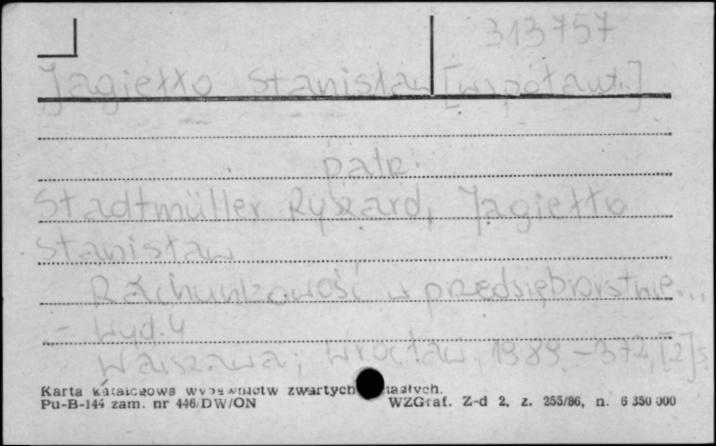 313757
Jagiełło Stanisław [współaut.]
patr.
Stadtmüller Ryszard, Jagiełło
Stanisław
Rachunkowość w przedsiębiorstwie...
- Wyd. 4
Warszawa; Wrocław, 1989. - 372, [2] s.
Karta katalogowa wydawnictw zwartych i ciągłych.
Pu-B-144 zam. nr 446/DW/ON WZGraf. Z-d 2, z. 255/86, n. 6 350 000